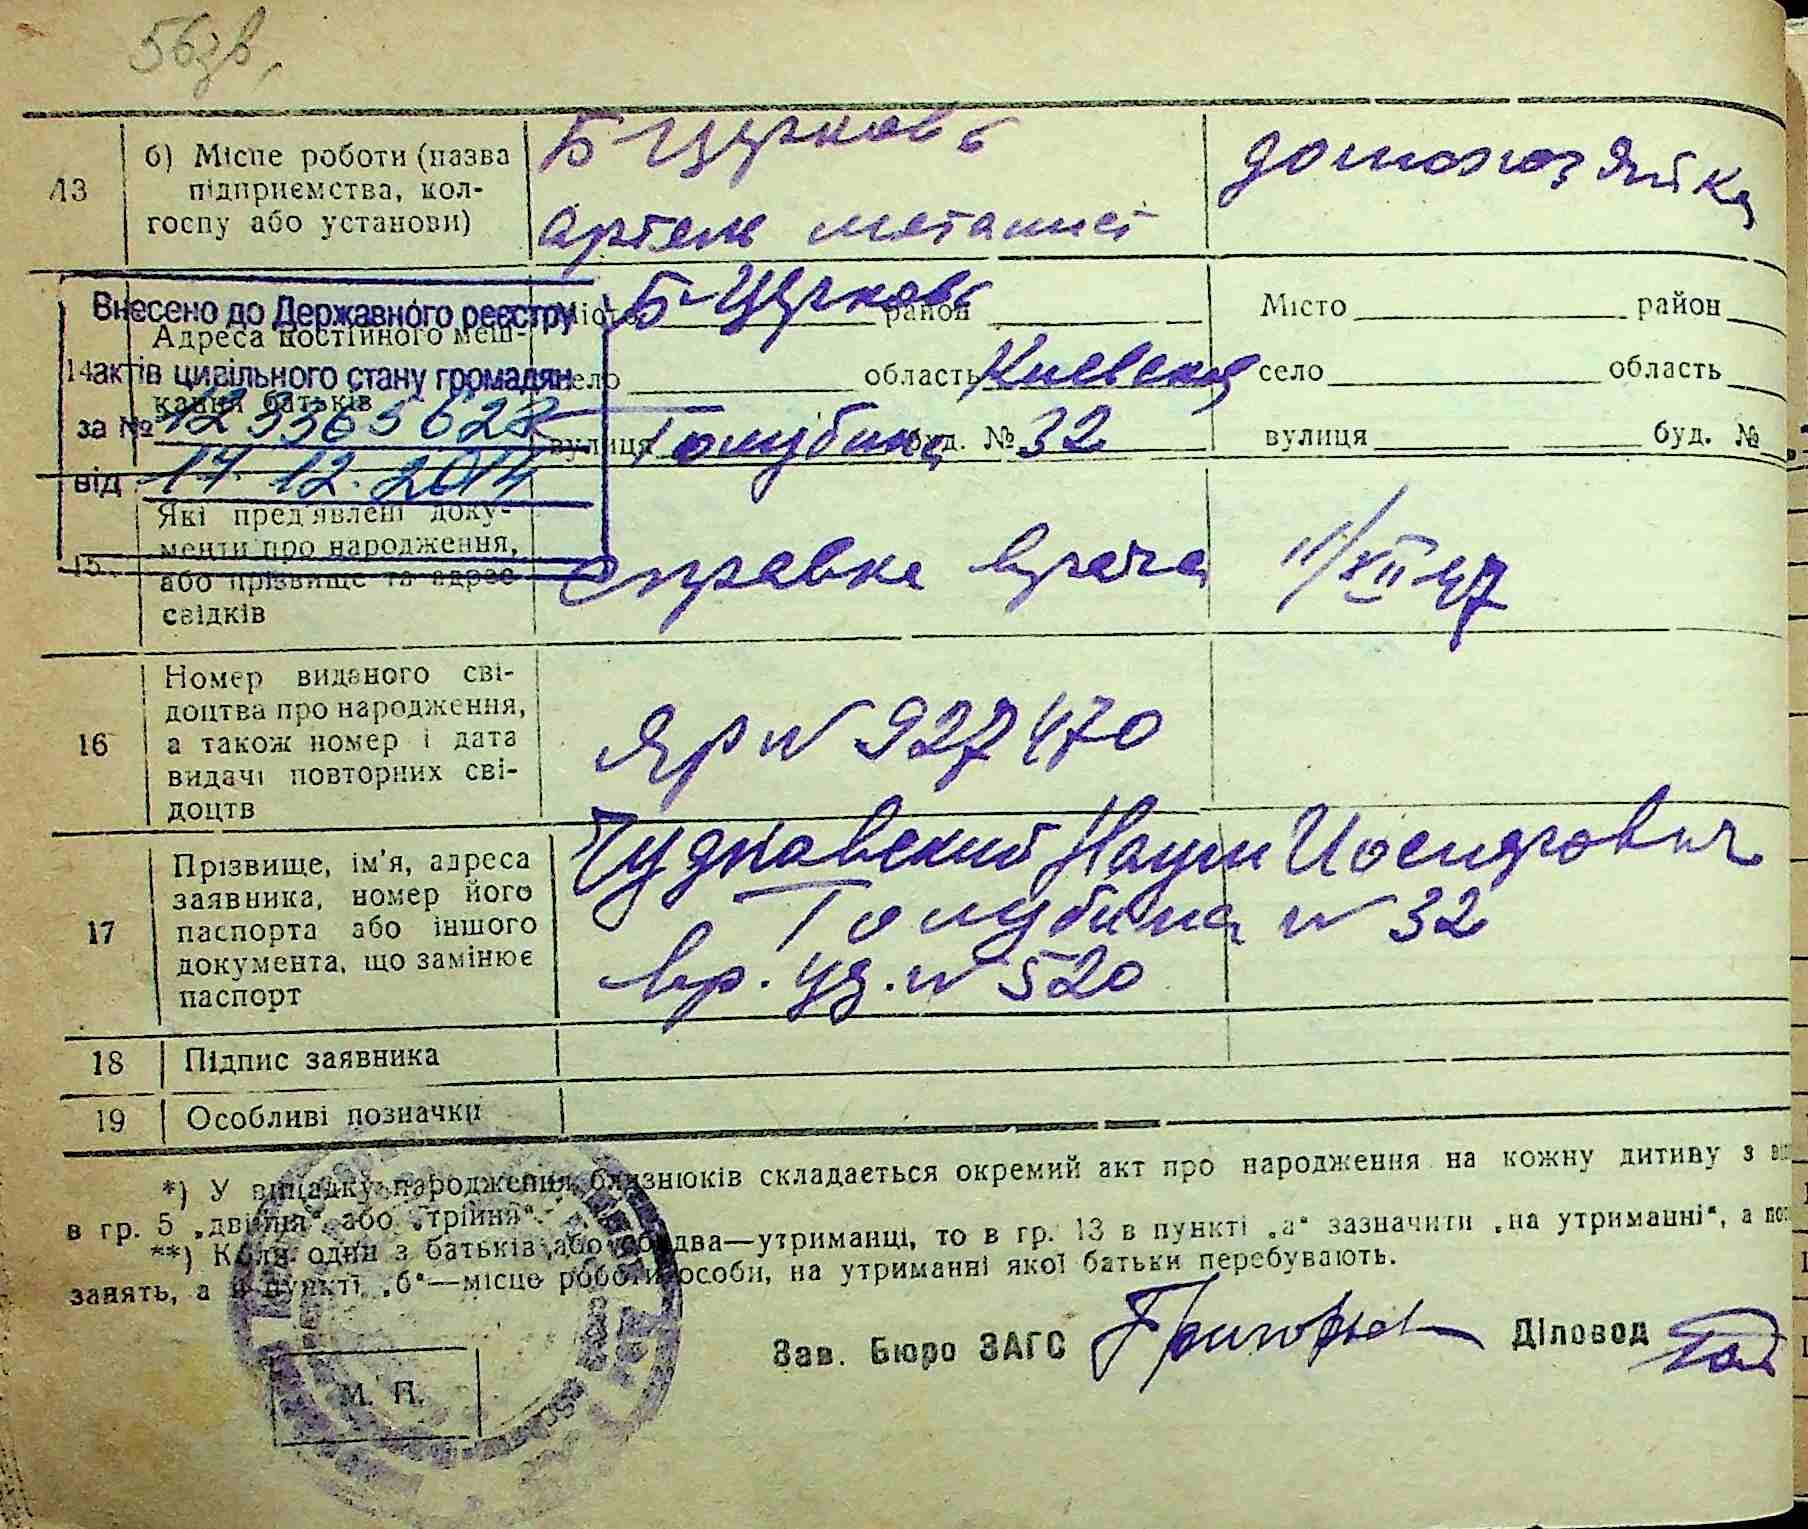 56зв.
13
б) Місце роботи (назва
підприємства, кол-
госпу або установи)
Б Церковь
артель металист
домохозяйка
Внесено до Державного реєстру
актів цивільного стану громадян
за №
від 17.12.2014
14
Адреса постійного меш-
кання батьків
Місто Б-Церковь район
село область Киевская
вулиця Голубина буд. № 32
Місто район
село область
вулиця буд. №
15
Які пред'явлені доку-
менти про народження,
або прізвище та адрес
свідків
справка врача 11/XII 47
16
Номер виданого сві-
доцтва про народження,
а також номер і дата
видачі повторних сві-
доцтв
ЯР № 927470
17
Прізвище, ім'я, адреса
заявника, номер його
паспорта або іншого
документа, що замінює
паспорт
Чудновский Наум Иосифович
Голубина № 32
вр. уд. № 520
18 Підпис заявника
19 Особливі позначки
*) У випадку народження близнюків складається окремий акт про народження на кожну дитину з
в гр. 5 „двійня“ або „трійня“.
**) Коли один з батьків або обидва—утриманці, то в гр. 13 в пункті „а“ зазначити „на утриманні“, а
занять, а в пункті „б“—місце роботи особи, на утриманні якої батьки перебувають.
Зав. Бюро ЗАГС Діловод
М. П.